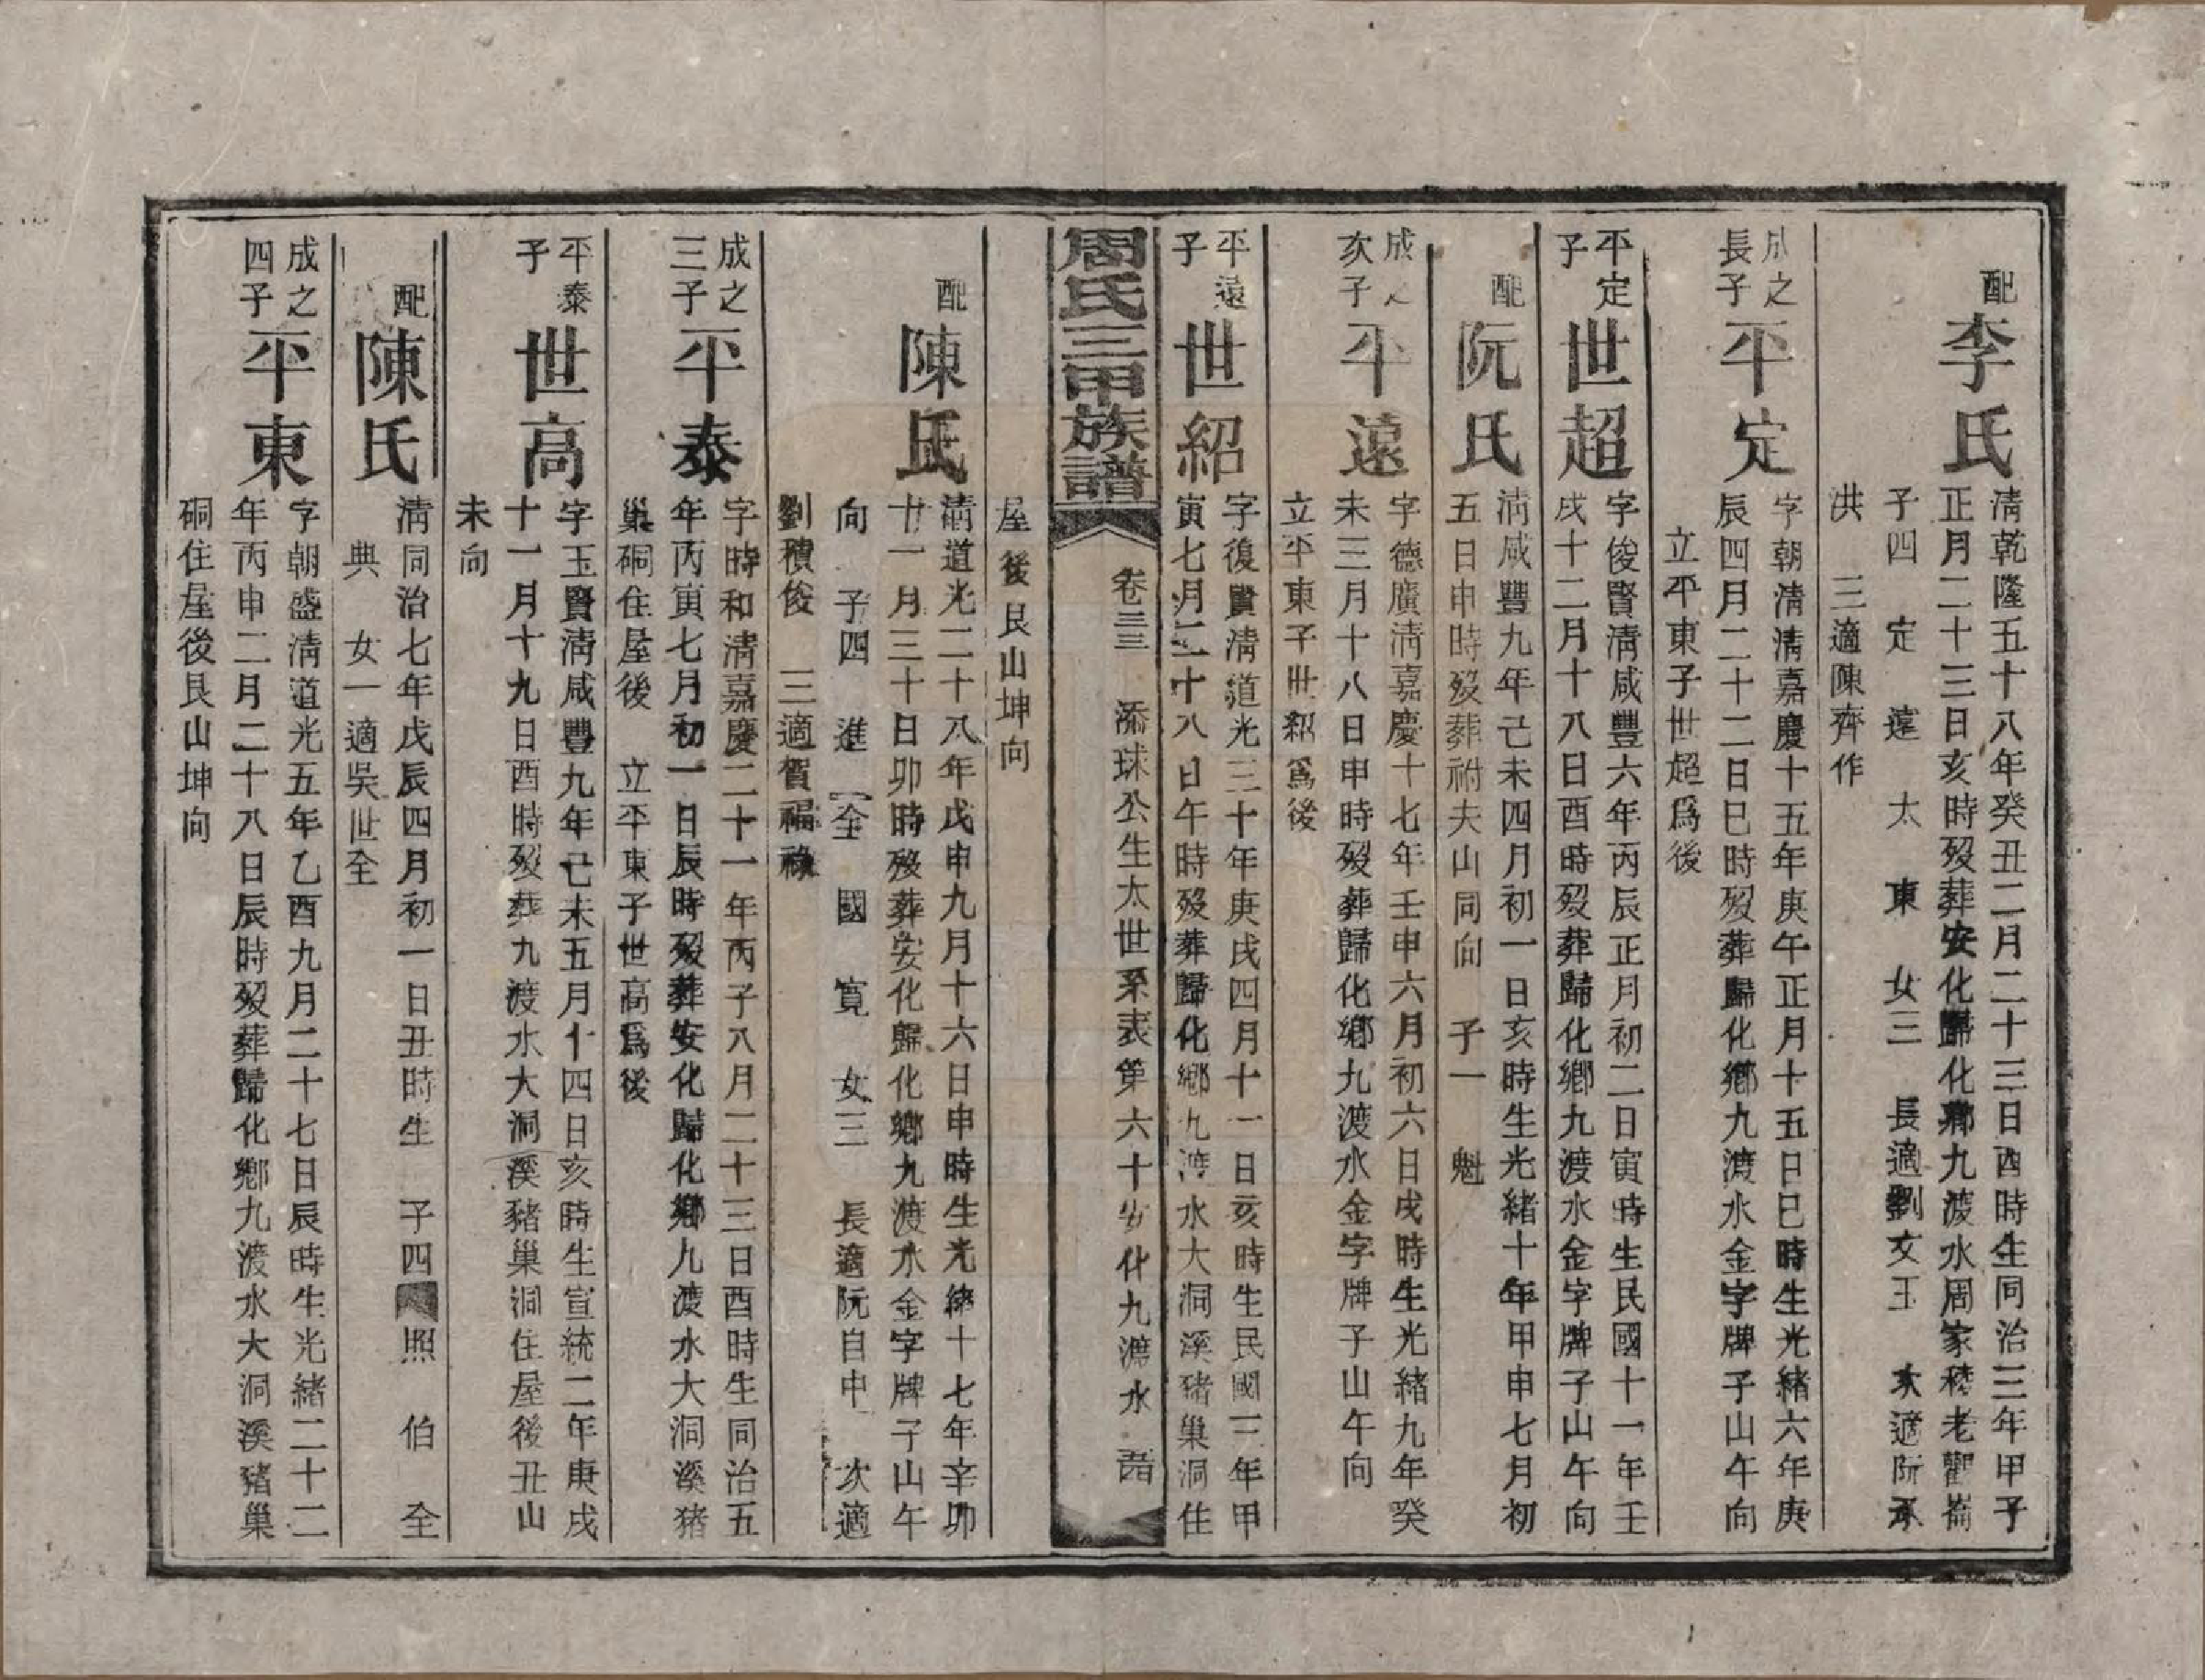 配
李氏
清乾隆五十八年癸丑二月二十三日酉時生同治三年甲子
正月二十三日亥時歿葬安化歸化鄉九渡水周家 老鸛崙
子四 定 遠 太 東 女三 長適劉文玉 次適阮承
洪 三適陳齊作
成之
長子
平定
字朝清清嘉慶十五年庚午正月十五日巳時生光緒六年庚
辰四月二十二日巳時歿葬歸化鄉九渡水金字牌子山午向
立平東子世超爲後
平定
子
世超
字俊賢清咸豐六年丙辰正月初二日寅時生民國十一年壬
戌十二月十八日酉時歿葬歸化鄉九渡水金字牌子山午向
配
阮氏
清咸豐九年己未四月初一日亥時生光緒十年甲申七月初
五日申時歿葬祔夫山同向 子一 魁
成之
次子
平遠
字德廣清嘉慶十七年壬申六月初六日戌時生光緒九年癸
未三月十八日申時歿葬歸化鄉九渡水金字牌子山午向
立平東子世紹爲後
平遠
子
世紹
字復賢清道光三十年庚戌四月十一日亥時生民國三年甲
寅七月二十八日午時歿葬歸化鄉九渡水大洞溪猪巢洞住
周氏三甲族譜
卷三三 添球公生太世系表第六十 安化九渡水
屋後艮山坤向
配
陳氏
清道光二十八年戊申九月十六日申時生光緒十七年辛卯
廿一月三十日卯時歿葬安化歸化鄉九渡水金字牌子山午
向 子四 進 全 國 寬 女三 長適阮自申 次適
劉積俊 三適賀福祿
成之
三子
平泰
字時和清嘉慶二十一年丙子八月二十三日酉時生同治五
年丙寅七月初一日辰時歿葬安化歸化鄉九渡水大洞溪猪
巢硐住屋後 立平東子世高爲後
平泰
子
世高
字玉賢清咸豐九年己未五月十四日亥時生宣統二年庚戌
十一月十九日酉時歿葬九渡水大洞溪豬巢洞住屋後丑山
未向
配
陳氏
清同治七年戊辰四月初一日丑時生 子四 照 伯 全
典 女一適吳世全
成之
四子
平東
字朝盛清道光五年乙酉九月二十七日辰時生光緒二十二
年丙申二月二十八日辰時歿葬歸化鄉九渡水大洞溪豬巢
硐住屋後艮山坤向